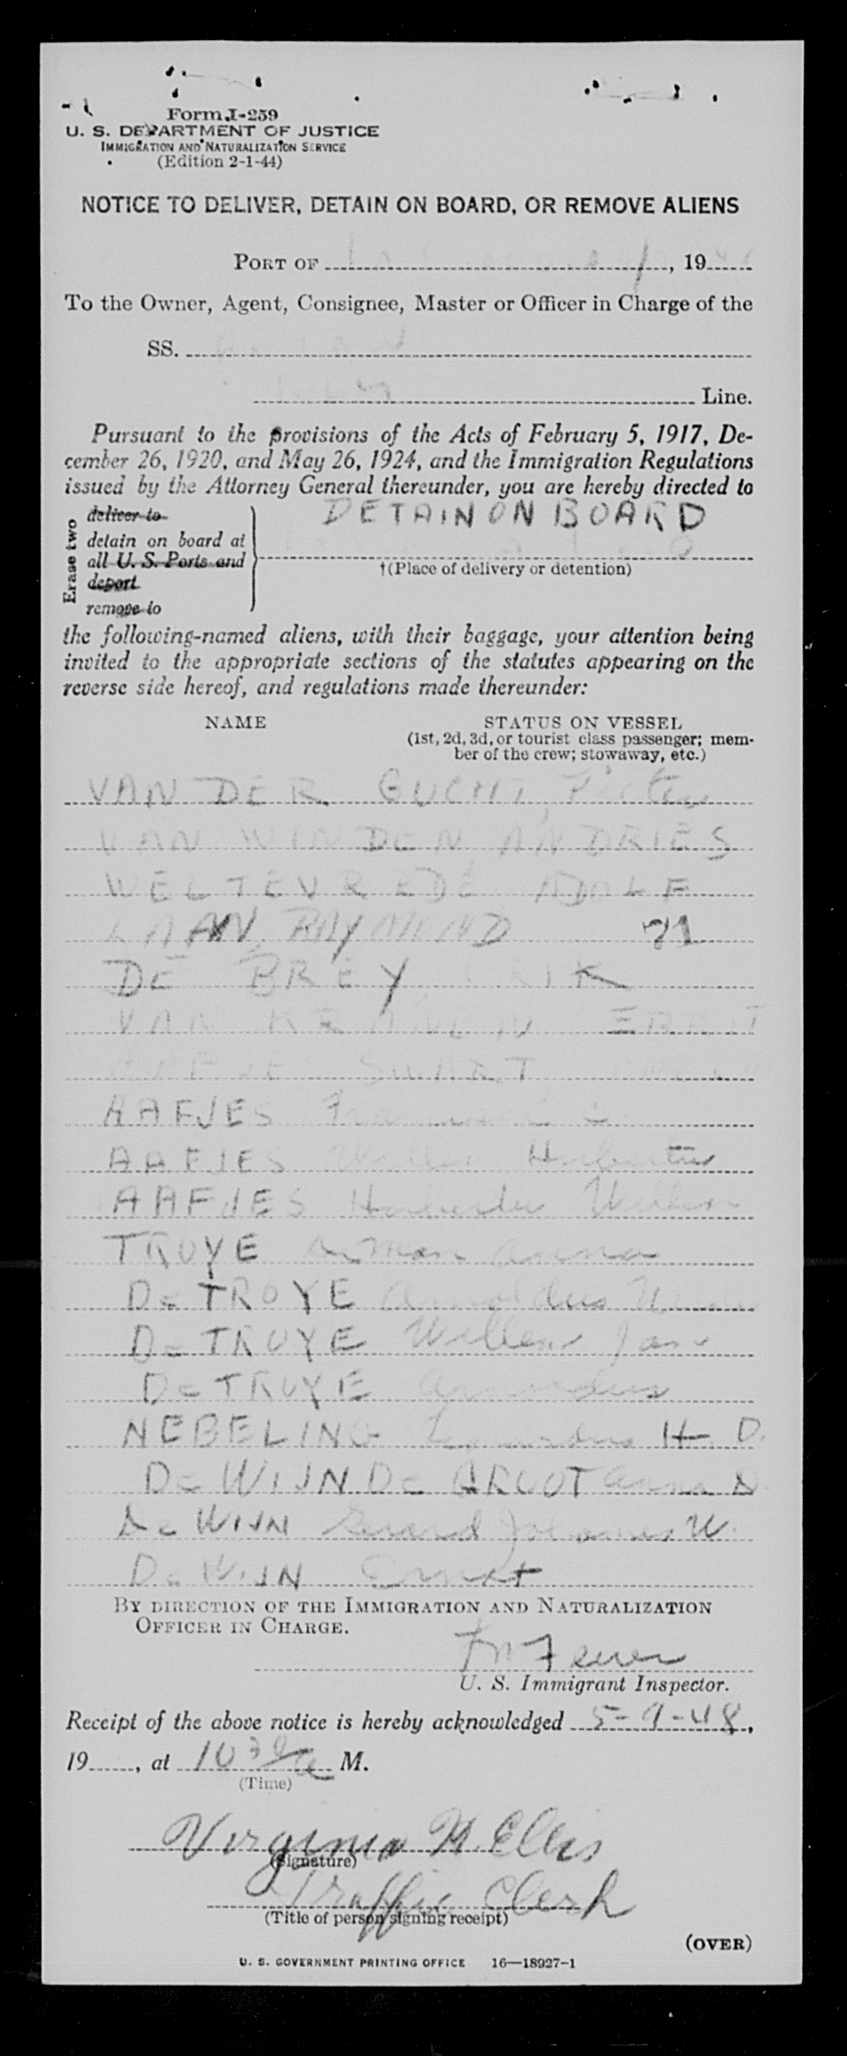 Form I-259
U. S. DEPARTMENT OF JUSTICE
IMMIGRATION AND NATURALIZATION SERVICE
(Edition 2-1-44)
NOTICE TO DELIVER, DETAIN ON BOARD, OR REMOVE ALIENS
PORT OF , 19
To the Owner, Agent, Consignee, Master or Officer in Charge of the
SS.
Line.
Pursuant to the provisions of the Acts of February 5, 1917, De-
cember 26, 1920, and May 26, 1924, and the Immigration Regulations
issued by the Attorney General thereunder, you are hereby directed to
Erase two
deliver to
detain on board at
all U. S. Ports and
deport
remove to
DETAIN ON BOARD
†(Place of delivery or detention)
the following-named aliens, with their baggage, your attention being
invited to the appropriate sections of the statutes appearing on the
reverse side hereof, and regulations made thereunder:
NAME STATUS ON VESSEL
(1st, 2d, 3d, or tourist class passenger; mem-
ber of the crew; stowaway, etc.)
VAN DER GUCHT, Pieter
VAN WINDEN ANDRIES
WELTEVREDE ADOLF
LAAN, RAYMOND 21
DE BREY ERIK
VAN
SWART
AAFJES
AAFJES Willem Hubertus
AAFJES Hubertus Willem
TROYE Anna
De TROYE Arnoldus
De TROYE Willem Jan
De TROYE Arnoldus
NEBELING H. D.
De WIJN De GROOT Anna D
De WIJN Gerard Johannes W.
De WIJN Ernst
BY DIRECTION OF THE IMMIGRATION AND NATURALIZATION
OFFICER IN CHARGE.
U. S. Immigrant Inspector.
Receipt of the above notice is hereby acknowledged 5-9-48,
19 , at 10 30 a M.
(Time)
Virginia M. Ellis
(Signature)
Traffic Clerk
(Title of person signing receipt)
(OVER)
U. S. GOVERNMENT PRINTING OFFICE 16—18927-1